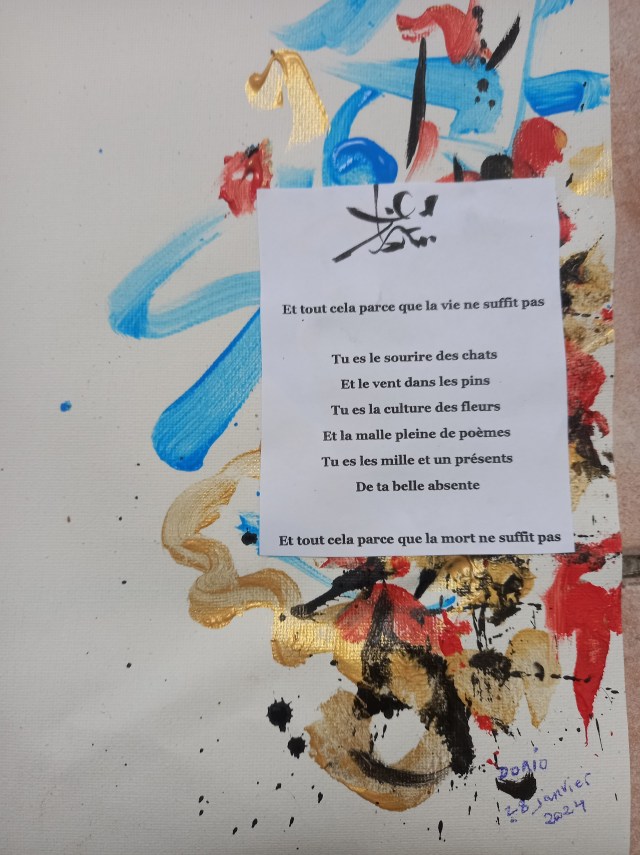 Et tout cela parce que la vie ne suffit pas
Tu es le sourire des chats
Et le vent dans les pins
Tu es la culture des fleurs
Et la malle pleine de poèmes
Tu es les mille et un présents
De ta belle absente
Et tout cela parce que la mort ne suffit pas
DORIO
28 janvier
2024